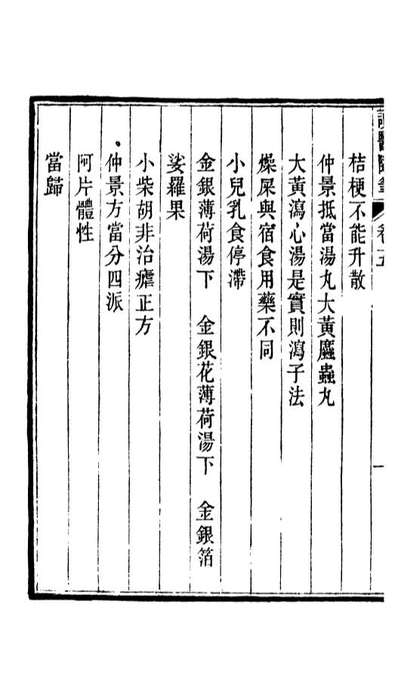 讀醫隨筆 卷五
桔梗不能升散
仲景抵當湯丸大黃䗪蟲丸
大黃瀉心湯是實則瀉子法
燥屎與宿食用藥不同
小兒乳食停滯
金銀薄荷湯下　金銀花薄荷湯下　金銀箔
娑羅果
小柴胡非治瘧正方
仲景方當分四派
阿片體性
當歸
一